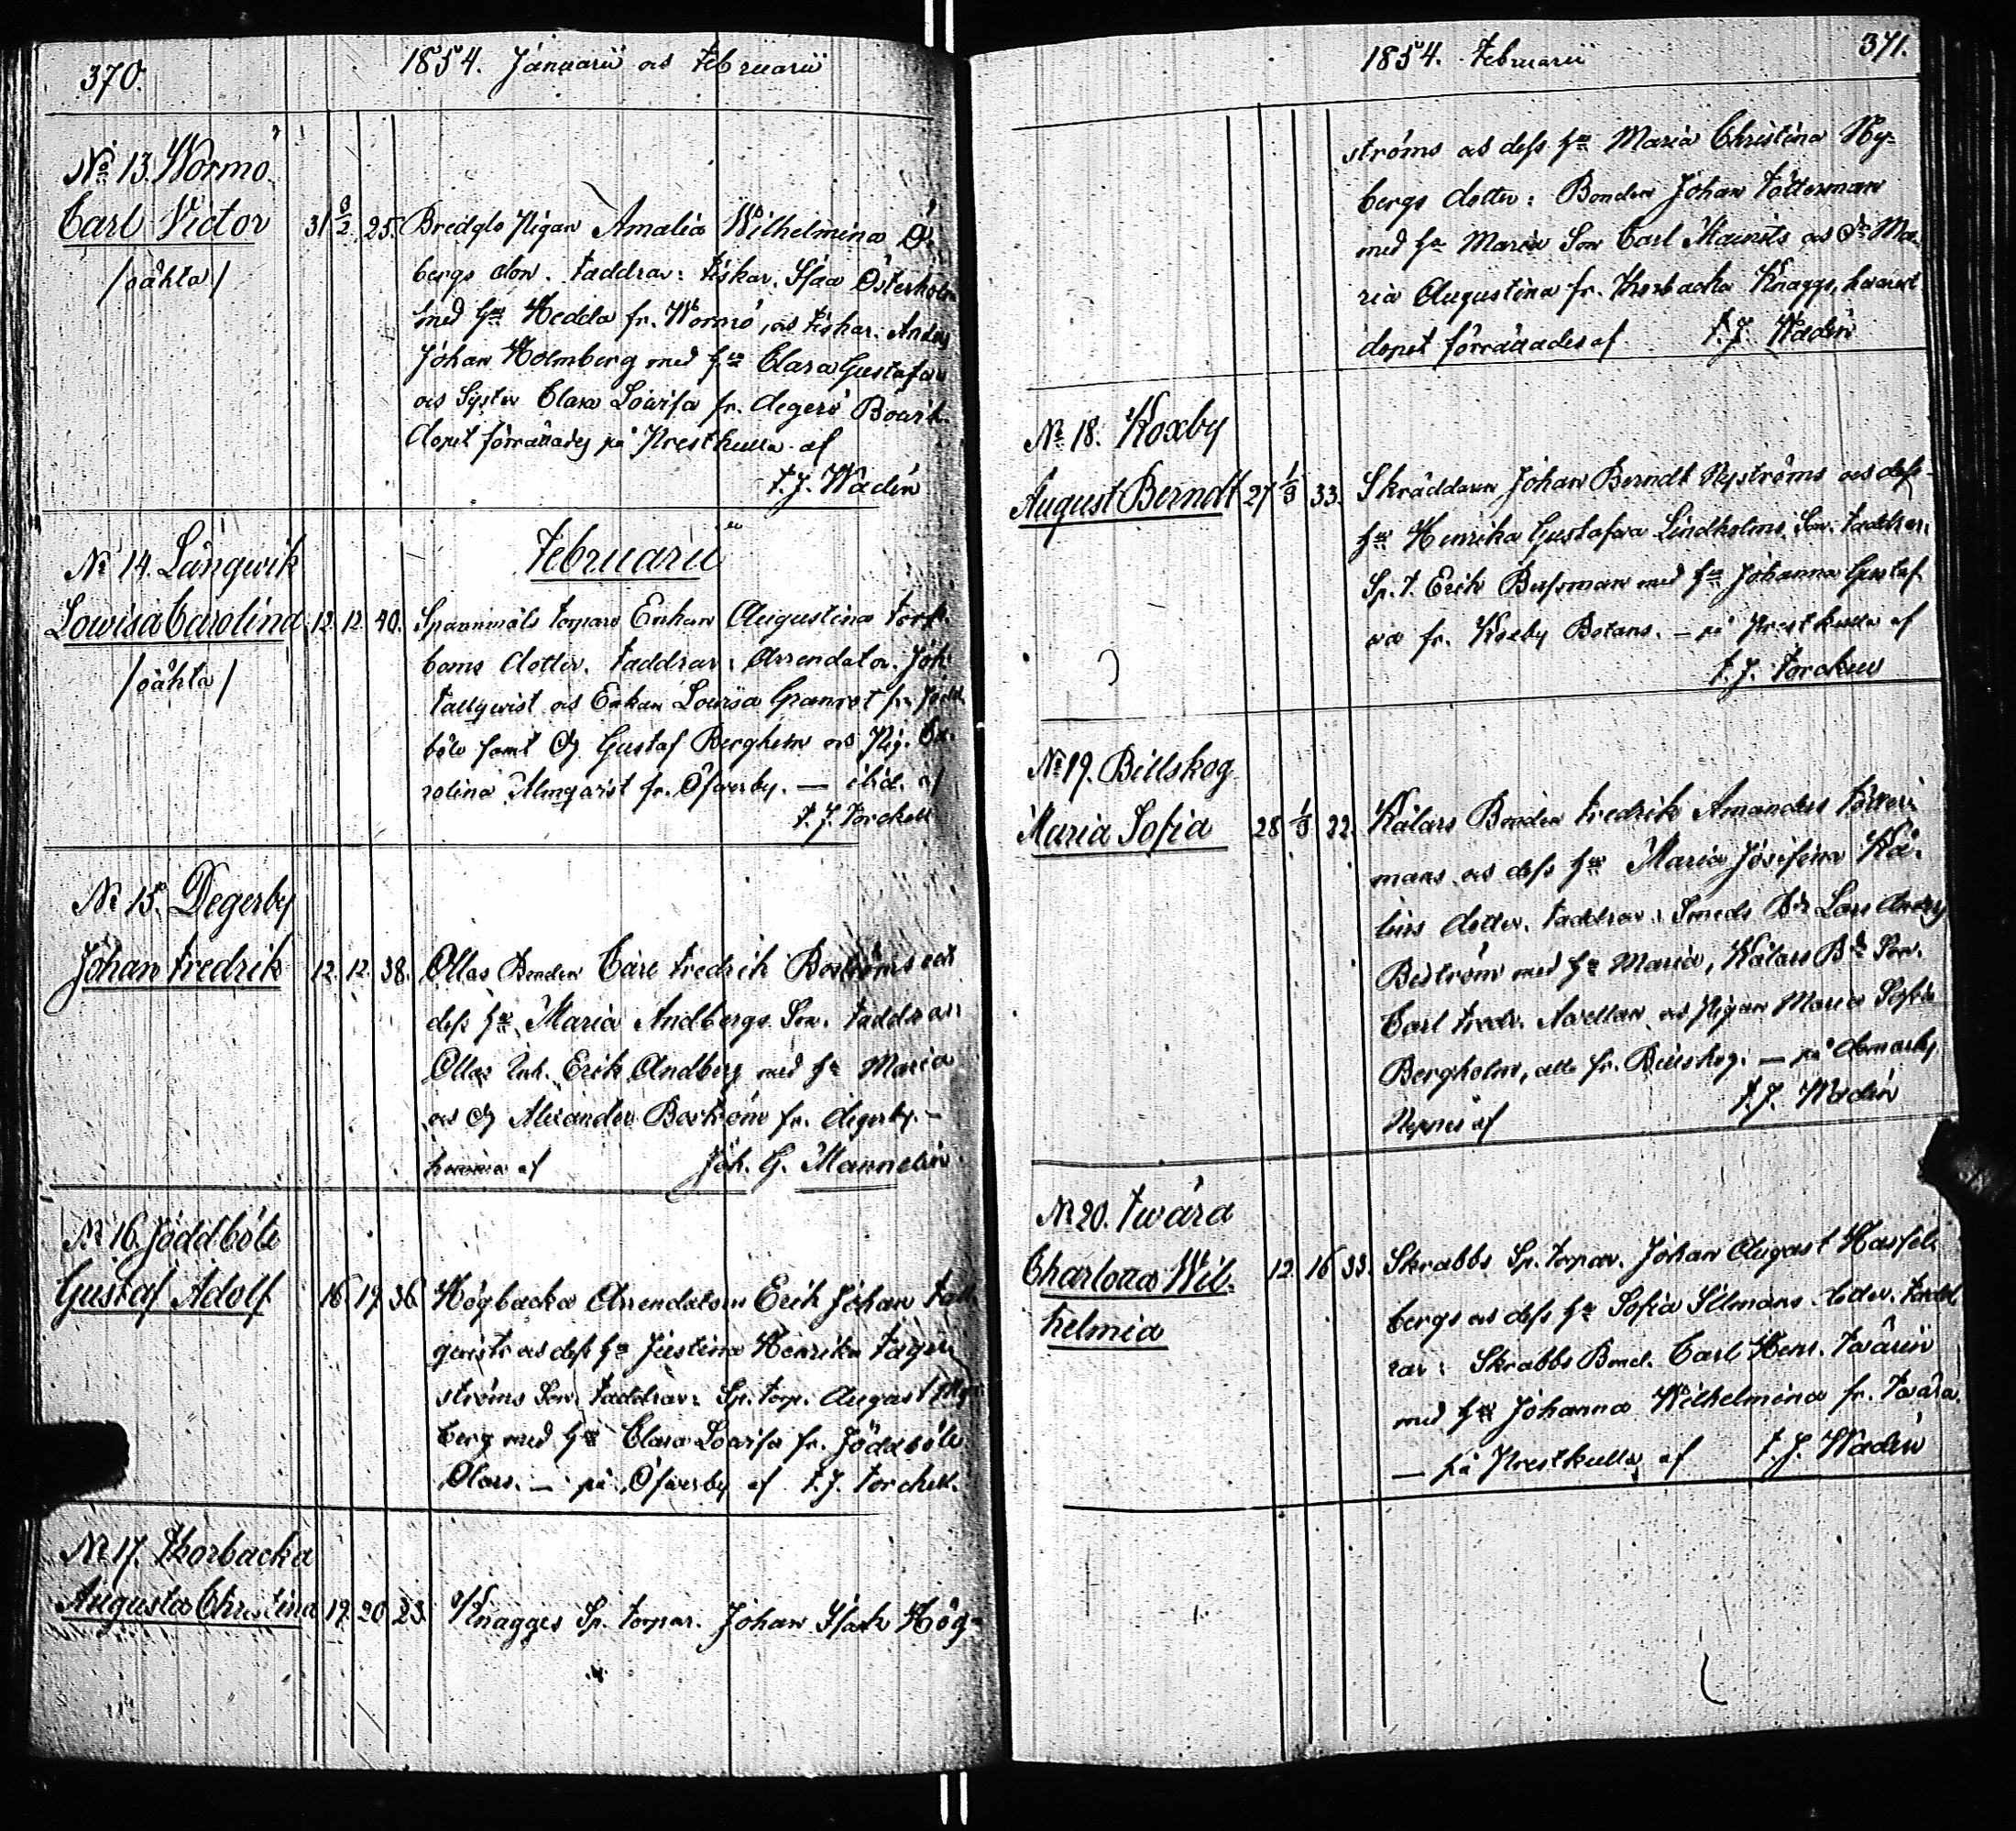 370.
1854. Januarii och Februarii
No 13. Wormö.
Carl Victor 31 8/2 25. Bredgls Pigan Amalia Wilhelmina
/oächta/
bergs son. Faddrar: Fiskar. Isaa Österholm
med hu Hedda fr. Wormö, och Fiskar. Anders
Johan Holmberg med hu Clara Gustafva
och Syster Clara Lowisa fr. degerö Båtvik.
dopet förrättades på Prestkulla af
F. J. Wadén
Februarii
No 14. Långwik
Lowisa Carolina 12. 12. 40. Spannmåls torpare Enkan Augustina Fork
/oächta/
boms dotter. Faddrar: Arrendator. Joh
Tallqwist och Enkan Lowisa Granrot fr. Jödd
böle samt Dg Gustaf Berghem och Pig. Ca.
rolina Almqwist fr. Öfwerby. — ibid. af
F. J. Forckell
No 15. Degerby
Johan Fredrik 12. 12. 38. Ollas Bonden Carl Fredrik Boströms och
dess hu Maria Andbergs Son. Faddrar:
Ollas Inh. Erik Andberg med hu Maria
och Dg Alexander Boström fr. degerby. —
hemma af Joh. G. Mannelin.
No 16. Jöddböle
Gustaf Adolf 16. 19. 36. Högbacka Arrendatorn Erik Johan Tall
qwists och dess hu Justina Henrika Fager
ströms Son. Faddrar: Sp. torp. August Ny
berg med hu Clara Lowisa fr. Jöddböle
Olars. — på Öfwerby af F. J. Forckell.
No 17. Thorbacka
Augusta Christina 19. 20. 23. Knaggs Sp. torpar. Johan Isak Hög-
1854. Februarii
371.
ströms och dess hu Maria Christina Ny-
bergs dotter: Bonden Johan Fötterman
med hu Maria Son Carl Mainits och Dr Ma-
ria Augustina fr. Thorbacka Knaggs, hwarest
dopet förrättades af F. J. Wadén
No 18. Koxby
August Berndt 27 1/3 33. Skräddaren Johan Berndt Nyströms och dess
hu Henrika Gustafva Lindholms Son. Faddrar:
Sp. t. Erik Bussman med hu Johanna Gustaf
va fr. Koxby Botans. — på Prestkulla af
F. J. Forckell
No 19. Billskog
Maria Sofia 28 1/3 22. Kålars Bonden Fredrik Amandus Fötter-
mans och dess hu Maria Josefina Kå-
lins dotter. Faddrar: Smeds Bd Lars Anders
Boström med hu Maria, Kålars Bd Son.
Carl Fredr. Avellan och Pigan Maria Sofia
Bergholm, alla fr. Billskog. — på
af F. J. Wadén
No 20. Twärä
Charlotta Wil- 12. 16. 33. Skrabbs Sp. torpar. Johan August Hassel-
helmia
bergs och dess hu Sofia Silmans dotter. Fadd
rar: Skrabbs Bond. Carl Henr. Twärin
med hu Johanna Wilhelmina fr. Twärä.
— på Prestkulla af F. J. Wadén